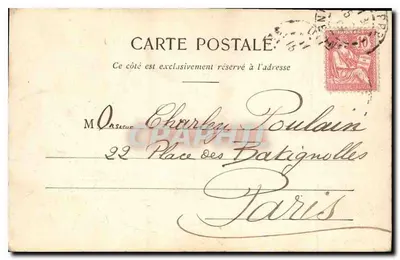 CARTE POSTALE
Ce côté est exclusivement réservé à l'adresse
Monsieur Charley Poulain
22 Place des Batignolles
Paris